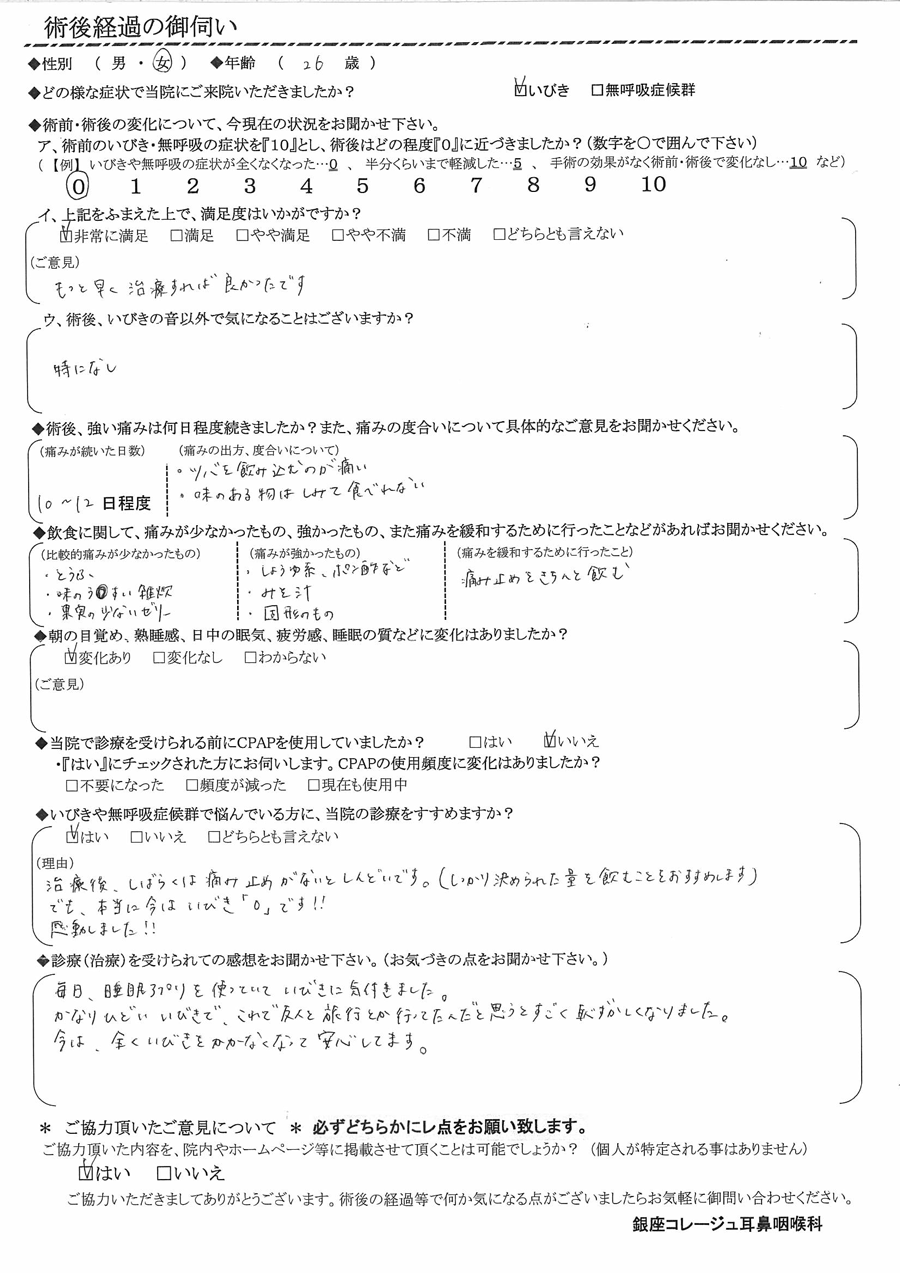 術後経過の御伺い
◆性別 ( 男 ・ 女 ) ◆年齢 ( 26 歳 )
◆どの様な症状で当院にご来院いただきましたか? ☑いびき □無呼吸症候群
◆術前・術後の変化について、今現在の状況をお聞かせ下さい。
ア、術前のいびき・無呼吸の症状を『10』とし、術後はどの程度『0』に近づきましたか?(数字を〇で囲んで下さい)
(【例】いびきや無呼吸の症状が全くなくなった…0 、 半分くらいまで軽減した…5 、 手術の効果がなく術前・術後で変化なし…10 など)
0 1 2 3 4 5 6 7 8 9 10
イ、上記をふまえた上で、満足度はいかがですか?
☑非常に満足 □満足 □やや満足 □やや不満 □不満 □どちらとも言えない
(ご意見)
もっと早く治療すれば良かったです
ウ、術後、いびきの音以外で気になることはございますか?
特になし
◆術後、強い痛みは何日程度続きましたか?また、痛みの度合いについて具体的なご意見をお聞かせください。
(痛みが続いた日数) (痛みの出方、度合いについて)
・ツバを飲み込むのが痛い
・味のある物はしみて食べれない
10~12 日程度
◆飲食に関して、痛みが少なかったもの、強かったもの、また痛みを緩和するために行ったことなどがあればお聞かせください。
(比較的痛みが少なかったもの) (痛みが強かったもの) (痛みを緩和するために行ったこと)
・とうふ ・しょうゆ系、ポン酢など 痛み止めをきちんと飲む
・味のうすい雑炊 ・みそ汁
・果実の少ないゼリー ・固形のもの
◆朝の目覚め、熟睡感、日中の眠気、疲労感、睡眠の質などに変化はありましたか?
☑変化あり □変化なし □わからない
(ご意見)
◆当院で診療を受けられる前にCPAPを使用していましたか? □はい ☑いいえ
・『はい』にチェックされた方にお伺いします。CPAPの使用頻度に変化はありましたか?
□不要になった □頻度が減った □現在も使用中
◆いびきや無呼吸症候群で悩んでいる方に、当院の診療をすすめますか?
☑はい □いいえ □どちらとも言えない
(理由)
治療後、しばらくは痛み止めがないとしんどいです。(しっかり決められた量を飲むことをおすすめします)
でも、本当に今はいびき「0」です!!
感動しました!!
◆診療(治療)を受けられての感想をお聞かせ下さい。(お気づきの点をお聞かせ下さい。)
毎日、睡眠アプリを使っていていびきに気付きました。
かなりひどいいびきで、これで友人と旅行とか行ってたんだと思うとすごく恥ずかしくなりました。
今は、全くいびきをかかなくなって安心してます。
* ご協力頂いたご意見について * 必ずどちらかにレ点をお願い致します。
ご協力頂いた内容を、院内やホームページ等に掲載させて頂くことは可能でしょうか? (個人が特定される事はありません)
☑はい □いいえ
ご協力いただきましてありがとうございます。術後の経過等で何か気になる点がございましたらお気軽に御問い合わせください。
銀座コレージュ耳鼻咽喉科